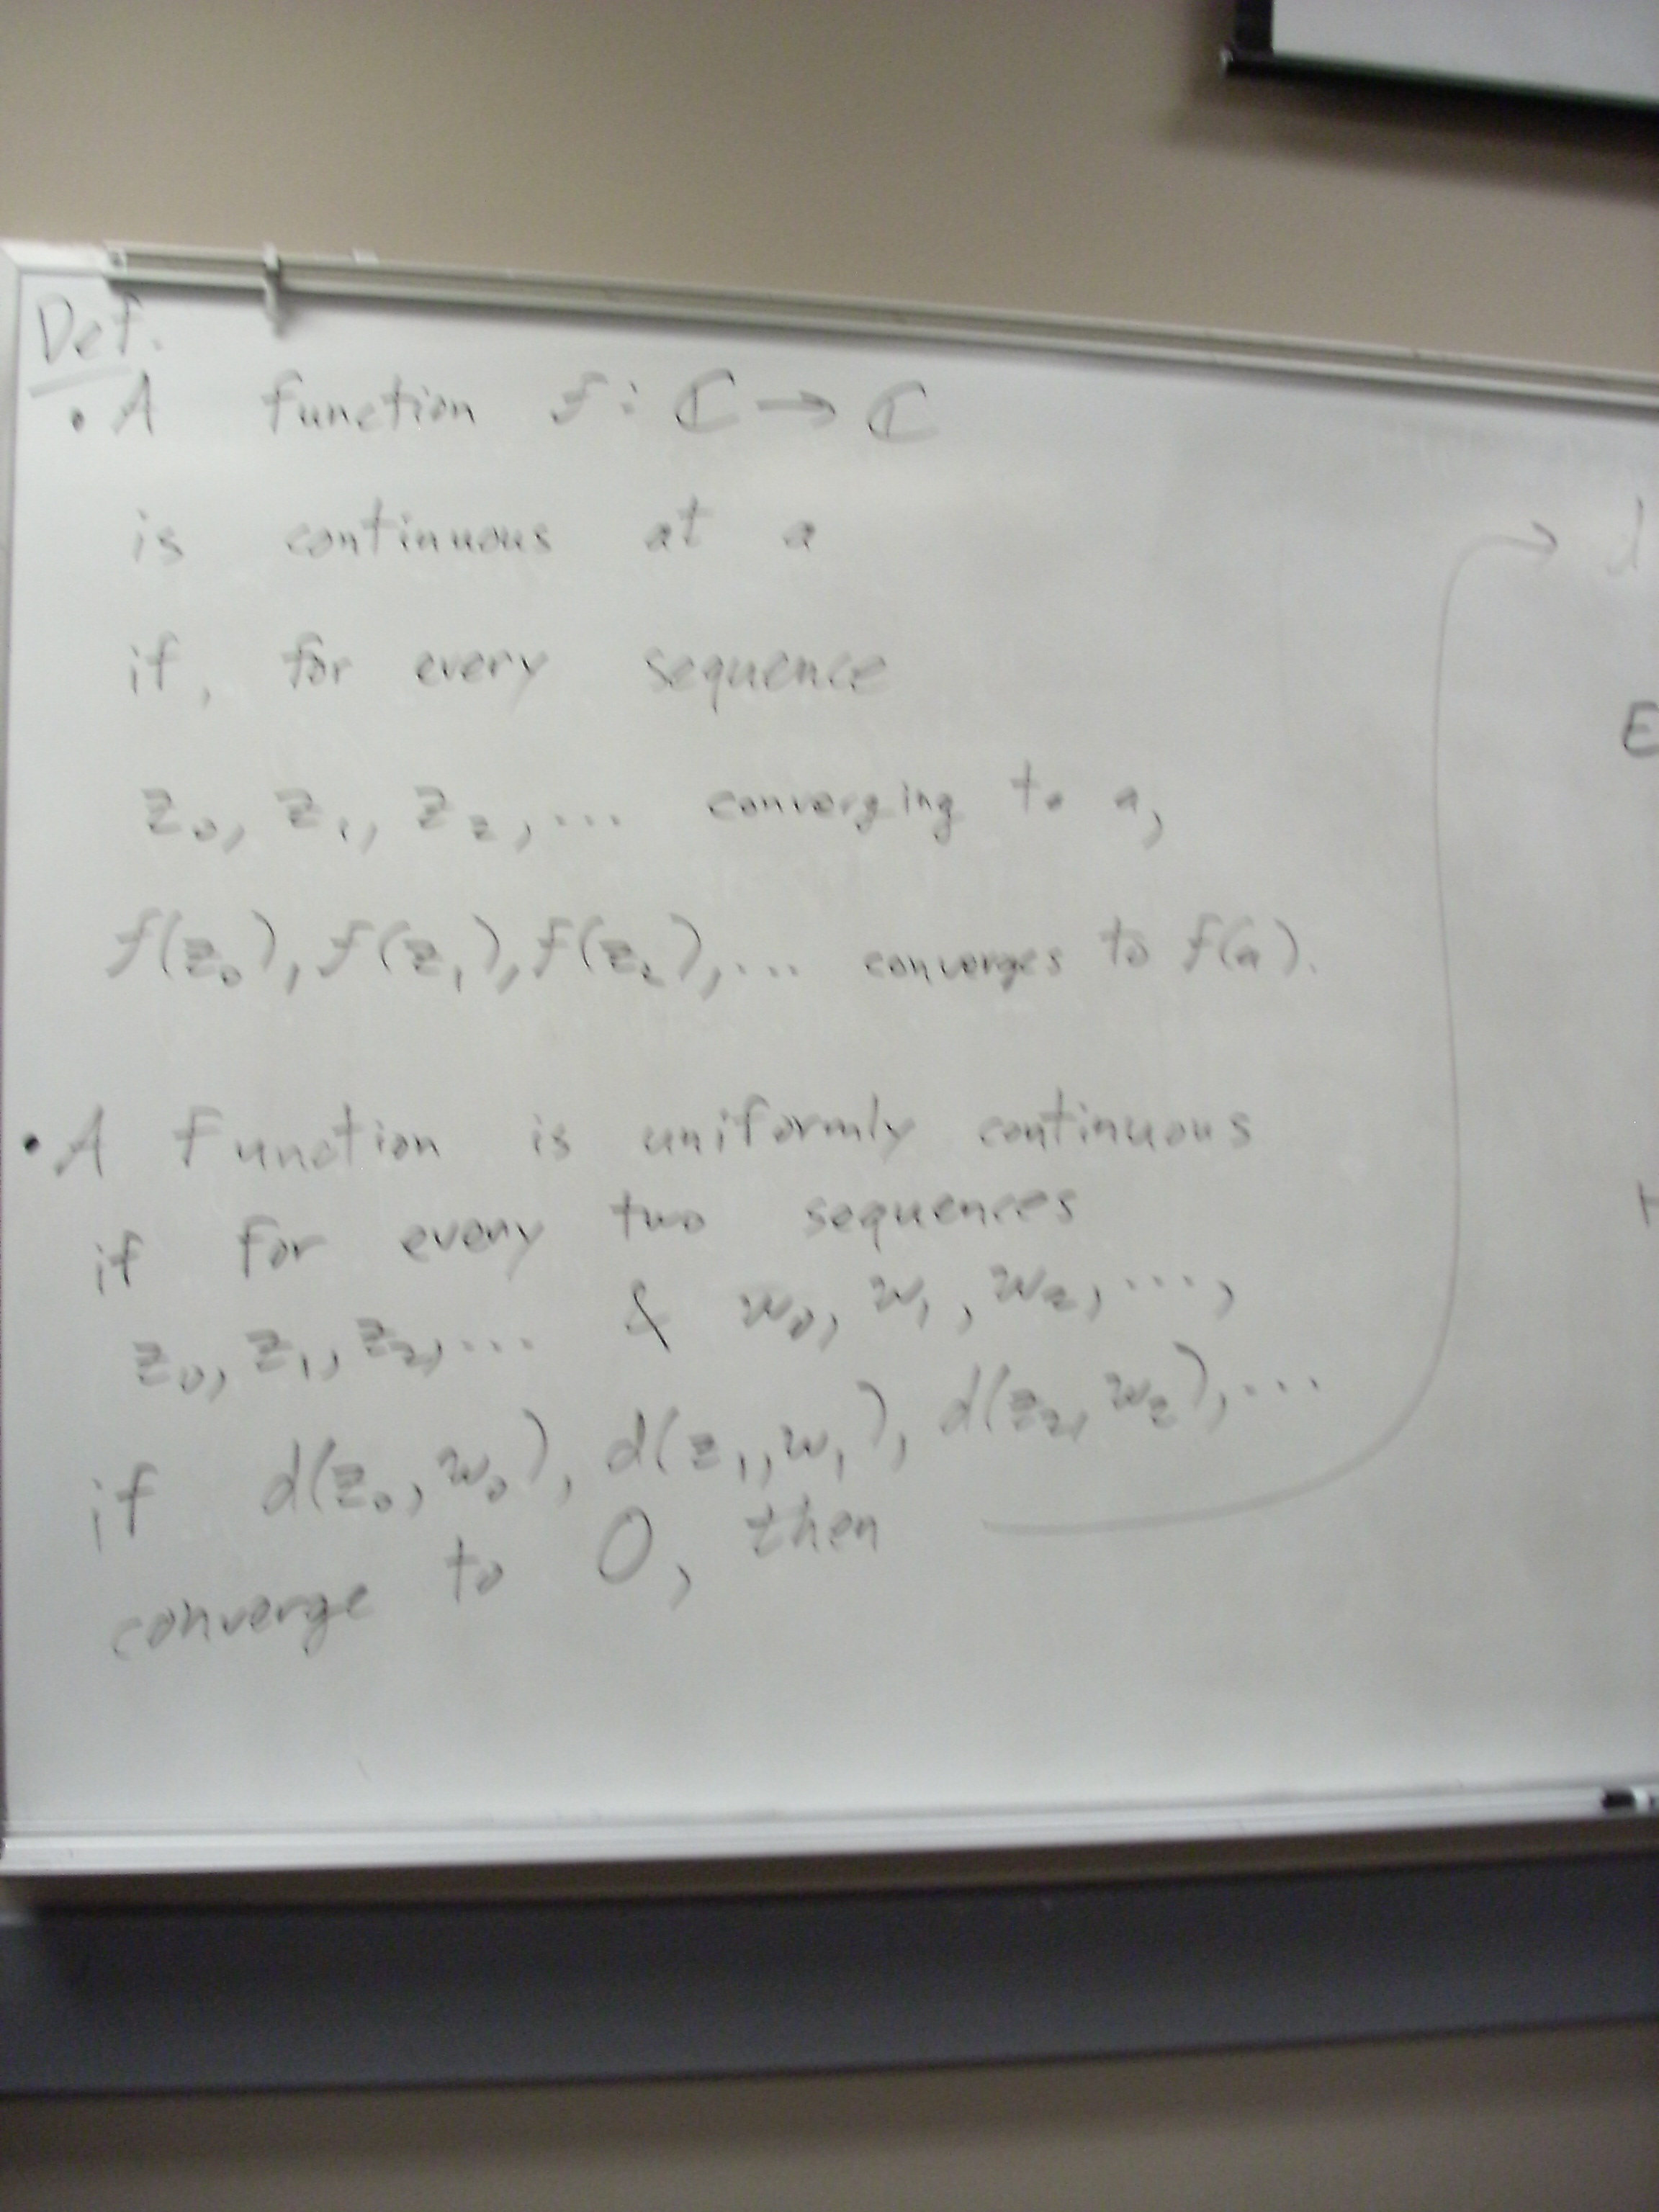 Def.
• A function f: ℂ → ℂ
is continuous at a
if, for every sequence
z₀, z₁, z₂, ... converging to a,
f(z₀), f(z₁), f(z₂), ... converges to f(a).
• A function is uniformly continuous
if for every two sequences
z₀, z₁, z₂, ... & w₀, w₁, w₂, ...,
if d(z₀, w₀), d(z₁, w₁), d(z₂, w₂), ...
converge to 0, then →
E